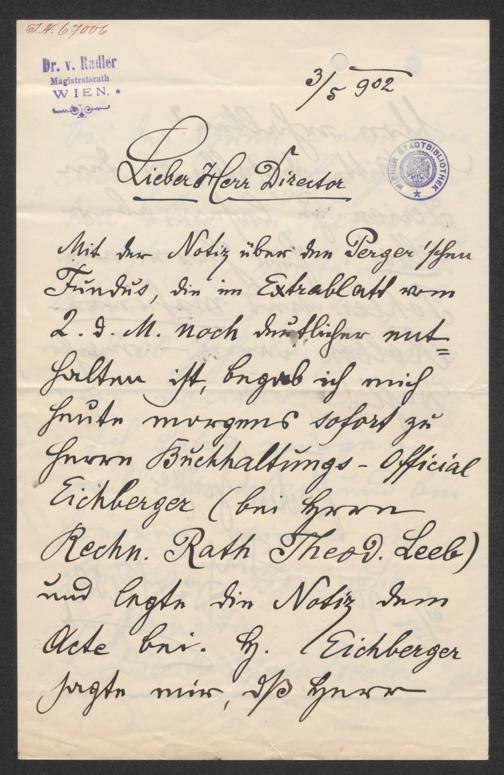 I.N. 67006
Dr. v. Radler
Magistratsrath
WIEN.
3/5 902
WIENER STADTBIBLIOTHEK
Lieber Herr Director
Mit der Notiz über den Perger'schen
Fundus, die im Extrablatt vom
2. d. M. noch deutlicher ent=
halten ist, begab ich mich
heute morgens sofort zu
Herrn Buchhaltungs-Official
Eichberger (bei Herrn
Rechn. Rath Theod. Leeb)
und legte die Notiz dem
Acte bei. H. Eichberger
sagte mir, dß Herr